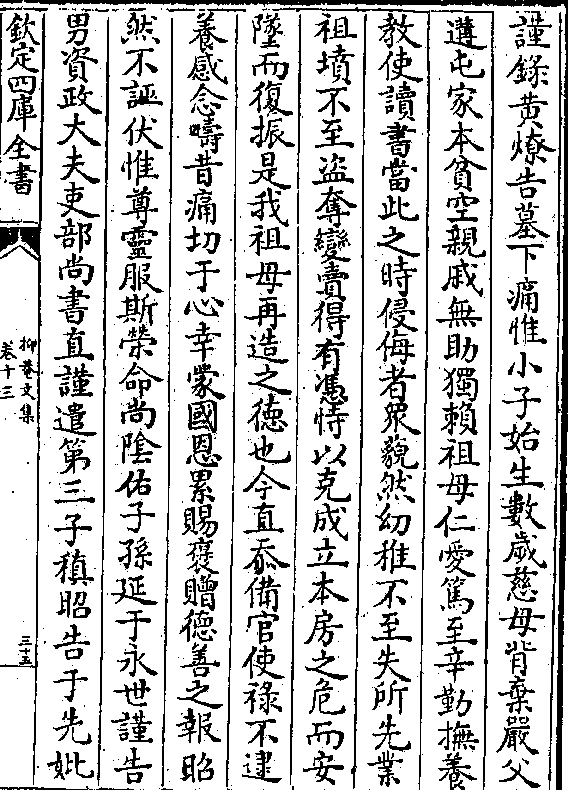 謹錄黄燎告墓下痛惟小子始生數歲慈母背棄嚴父
遘屯家本貧空親戚無助獨賴祖母仁愛篤至辛勤撫養
教使讀書當此之時侵侮者衆藐然幼稚不至失所先業
祖墳不至盜奪變賣得有憑恃以克成立本房之危而安
墜而復振是我祖母再造之德也今直忝備官使祿不逮
養感念疇昔痛切于心幸蒙國恩累賜襃贈德善之報昭
然不誣伏惟尊靈服斯榮命尚陰佑子孫延于永世謹告
男資政大夫吏部尚書直謹遣第三子稹昭告于先妣
欽定四庫全書
抑菴文集
卷十三
三十五